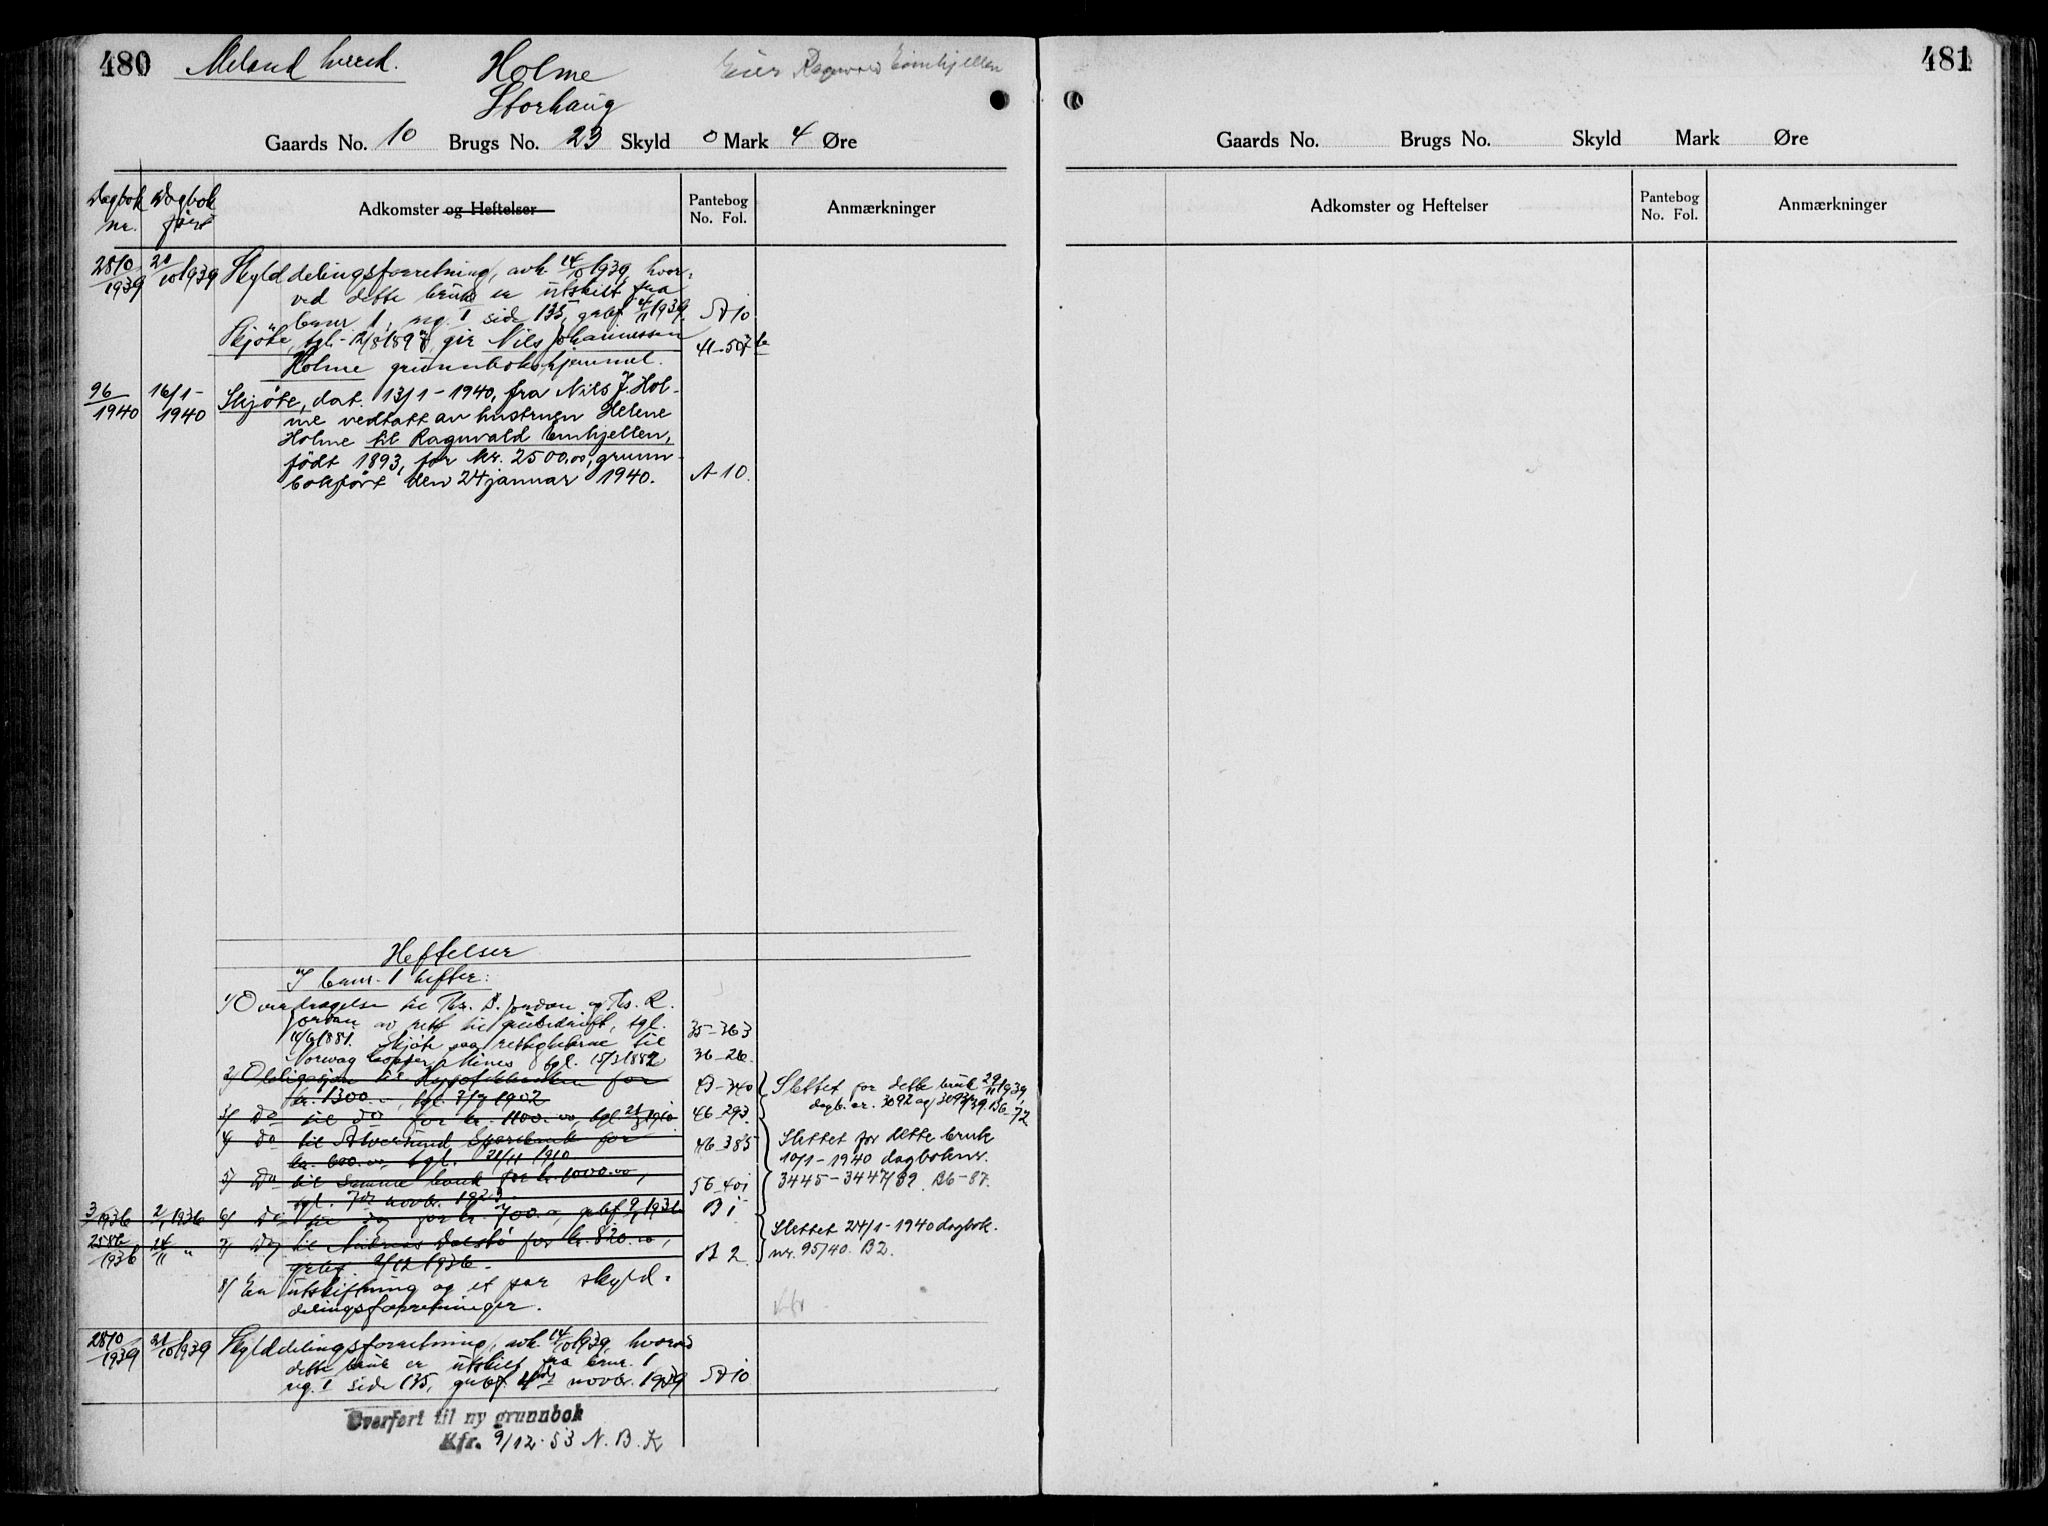 480
Meland herred.
Holme
Eier Ragnvald Eimhjellen
Storhaug
Gaards No. 10 Brugs No. 23 Skyld 0 Mark 4 Øre
Dagbok nr.
Dagbok ført
Adkomster og Heftelser
Pantebog
No. Fol.
Anmærkninger
2810/1939 20/10 1939 Skylddelingsforretning, avh. 14/10 1939, hvor-
ved dette bruk er utskilt fra
bnr. 1, reg. 1 side 135, grbf. 4/11 1939. A 10
Skjøte, tgl. 12/8 189 gir Nils Johannessen 41-507 b
Holme grunnbokshjemmel.
96/1940 16/1-1940 Skjøte, dat. 13/1-1940, fra Nils J. Hol-
me vedtatt av hustruen Helene
Holme til Ragnvald Eimhjellen,
født 1893, for kr. 2500.00, grunn-
bokført den 24 januar 1940. A 10.
Heftelser
I bnr. 1 hefter:
1) Overdragelse til Thr. B. Jordan og Ths. R.
Jordan av rett til grubedrift, tgl. 35-363
14/6 1881. Skjøte paa rettighetene til
Norway Copper Mines tgl. 15/3 1882 36-26.
2) Obligasjon til Hypotekbanken for B-340
kr. 1300.-, tgl. 7/7 1902
3) Do til Do for kr. 1100.00, tgl. 1910. 46-293.
4) Do til Alversund Sparebank for 46-385
kr. 600.00, tgl. 21/11 1910.
5) Do til samme bank for kr. 1000.00, 56-401
tgl. 7de novbr. 1923.
3/1936 2/1 1936 6) Do til Do for kr. 700.-, grbf. 9/1 1936 B 1
2586/1936 24/11 " 7) Do til Dalstø for kr. 820.00, B 2
grbf. 2/12 1936.
8) En utskiftning og et par skyld-
delingsforretninger.
Slettet for dette bruk 29/11 1939,
dagb. nr. 3092 og 3093/39. B6-72
Slettet for dette bruk
10/1-1940 dagboknr.
3445-3447/39. B6-87.
Slettet 24/1-1940 dagbok.
nr. 95/40. B2.
2810/1939 21/10 1939 Skylddelingsforretning, avh. 14/10 1939, hvorved
dette bruk er utskilt fra bnr. 1
reg. 1 side 135, grbf. 4de novbr. 1939 A 10
Overført til ny grunnbok
Kfr. 9/12-53 N. B. K
481
Gaards No. Brugs No. Skyld Mark Øre
Adkomster og Heftelser
Pantebog
No. Fol.
Anmærkninger